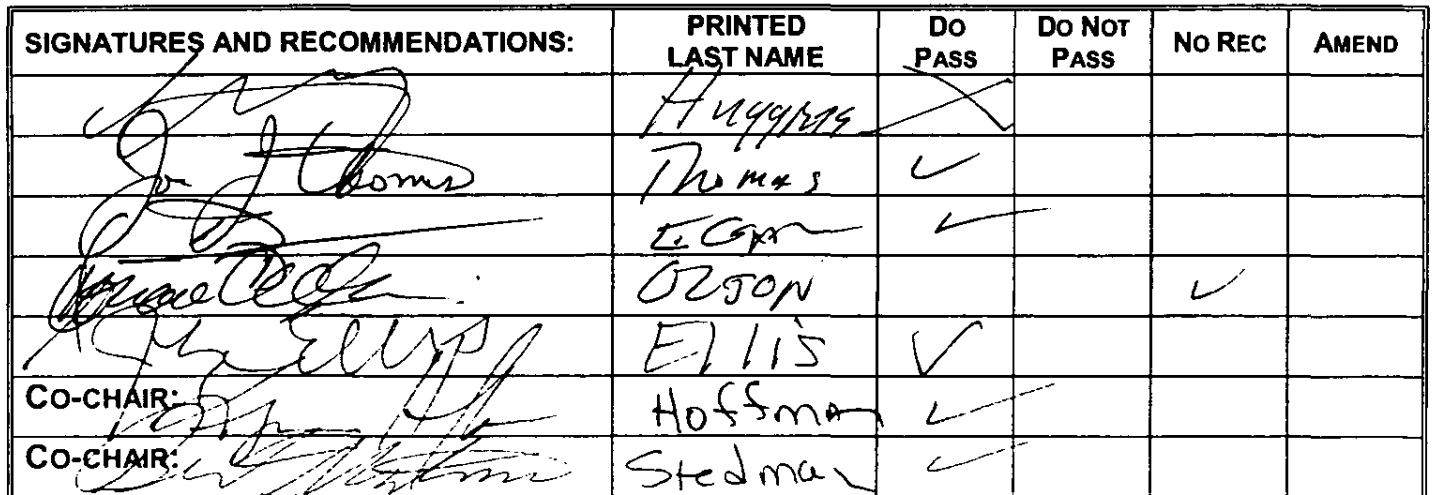 SIGNATURES AND RECOMMENDATIONS: PRINTED LAST NAME DO PASS DO NOT PASS NO REC AMEND
Huggins
Thomas Thomas ✓
Egan ✓
OLSON ✓
Ellis Ellis ✓
CO-CHAIR: Hoffman ✓
CO-CHAIR: Stedman ✓